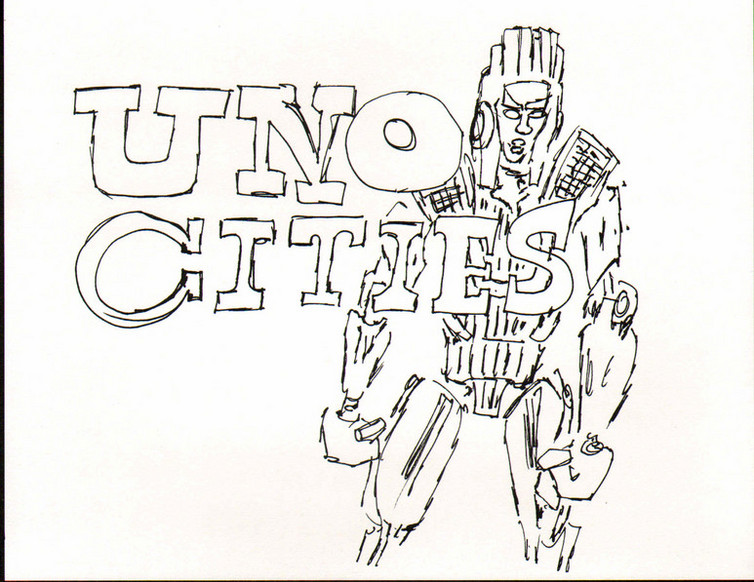 UNO
CITIES